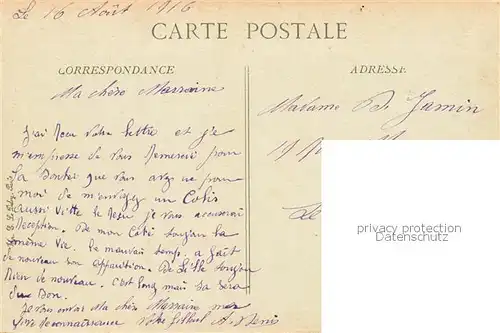 Le 16 Août 1916
CARTE POSTALE
CORRESPONDANCE
ADRESSE
Ma chère Marraine
Madame D. Jamin
J'ai reçu votre lettre et je
m'empresse de vous remercier pour
la Bonté que vous avez eu pour
moi de m'envoyez un Colis
aussi vitte le reçu je vous accuserai
reception. De mon côté toujour la
même vie. le mauvais temp. a fait
de nouveau son aparition. De Lille toujour
Rien de nouveau. C'est long mais sa sera
du Bon.
je vous envois Ma chère Marraine mes
vive reconnaissance Votre filleul A. Denis
19
Le
privacy protection